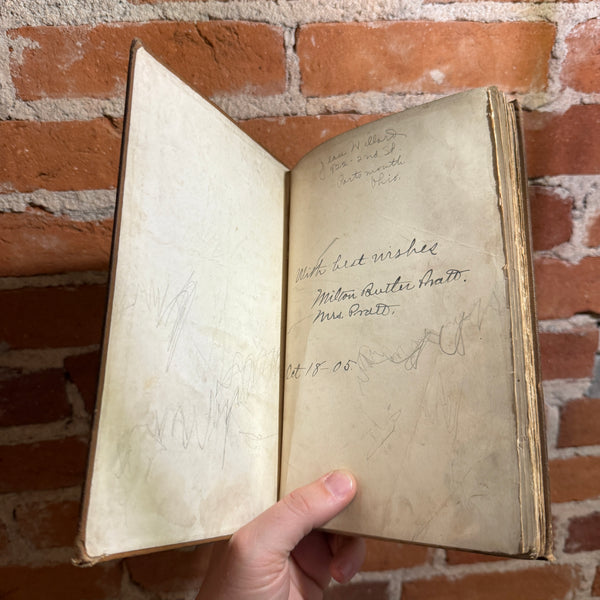 Jean Willard
822-2nd St
Portsmouth
Ohio.
With best wishes
Milton Butler Pratt.
Mrs. Pratt.
Oct 18-05.